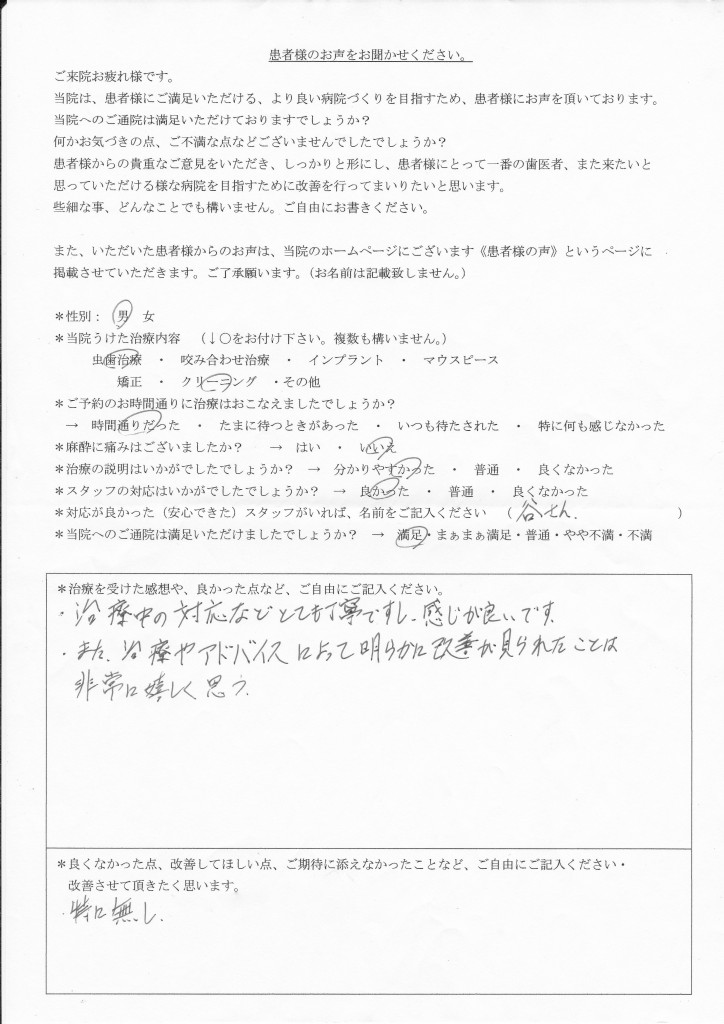 患者様のお声をお聞かせください。
ご来院お疲れ様です。
当院は、患者様にご満足いただける、より良い病院づくりを目指すため、患者様にお声を頂いております。
当院へのご通院は満足いただけておりますでしょうか？
何かお気づきの点、ご不満な点などございませんでしたでしょうか？
患者様からの貴重なご意見をいただき、しっかりと形にし、患者様にとって一番の歯医者、また来たいと
思っていただける様な病院を目指すために改善を行ってまいりたいと思います。
些細な事、どんなことでも構いません。ご自由にお書きください。
また、いただいた患者様からのお声は、当院のホームページにございます《患者様の声》というページに
掲載させていただきます。ご了承願います。（お名前は記載致しません。）
＊性別： 男 女
＊当院うけた治療内容 （↓○をお付け下さい。複数も構いません。）
虫歯治療 ・ 咬み合わせ治療 ・ インプラント ・ マウスピース
矯正 ・ クリーニング ・その他
＊ご予約のお時間通りに治療はおこなえましたでしょうか？
→ 時間通りだった ・ たまに待つときがあった ・ いつも待たされた ・ 特に何も感じなかった
＊麻酔に痛みはございましたか？ → はい ・ いいえ
＊治療の説明はいかがでしたでしょうか？ → 分かりやすかった ・ 普通 ・ 良くなかった
＊スタッフの対応はいかがでしたでしょうか？ → 良かった ・ 普通 ・ 良くなかった
＊対応が良かった（安心できた）スタッフがいれば、名前をご記入ください （ 谷さん. ）
＊当院へのご通院は満足いただけましたでしょうか？ → 満足・まぁまぁ満足・普通・やや不満・不満
＊治療を受けた感想や、良かった点など、ご自由にご記入ください。
・治療中の対応などとても丁寧ですし、感じが良いです.
・また、治療やアドバイスによって明らかに改善が見られたことは
非常に嬉しく思う.
＊良くなかった点、改善してほしい点、ご期待に添えなかったことなど、ご自由にご記入ください・
改善させて頂きたく思います。
・特に無し.